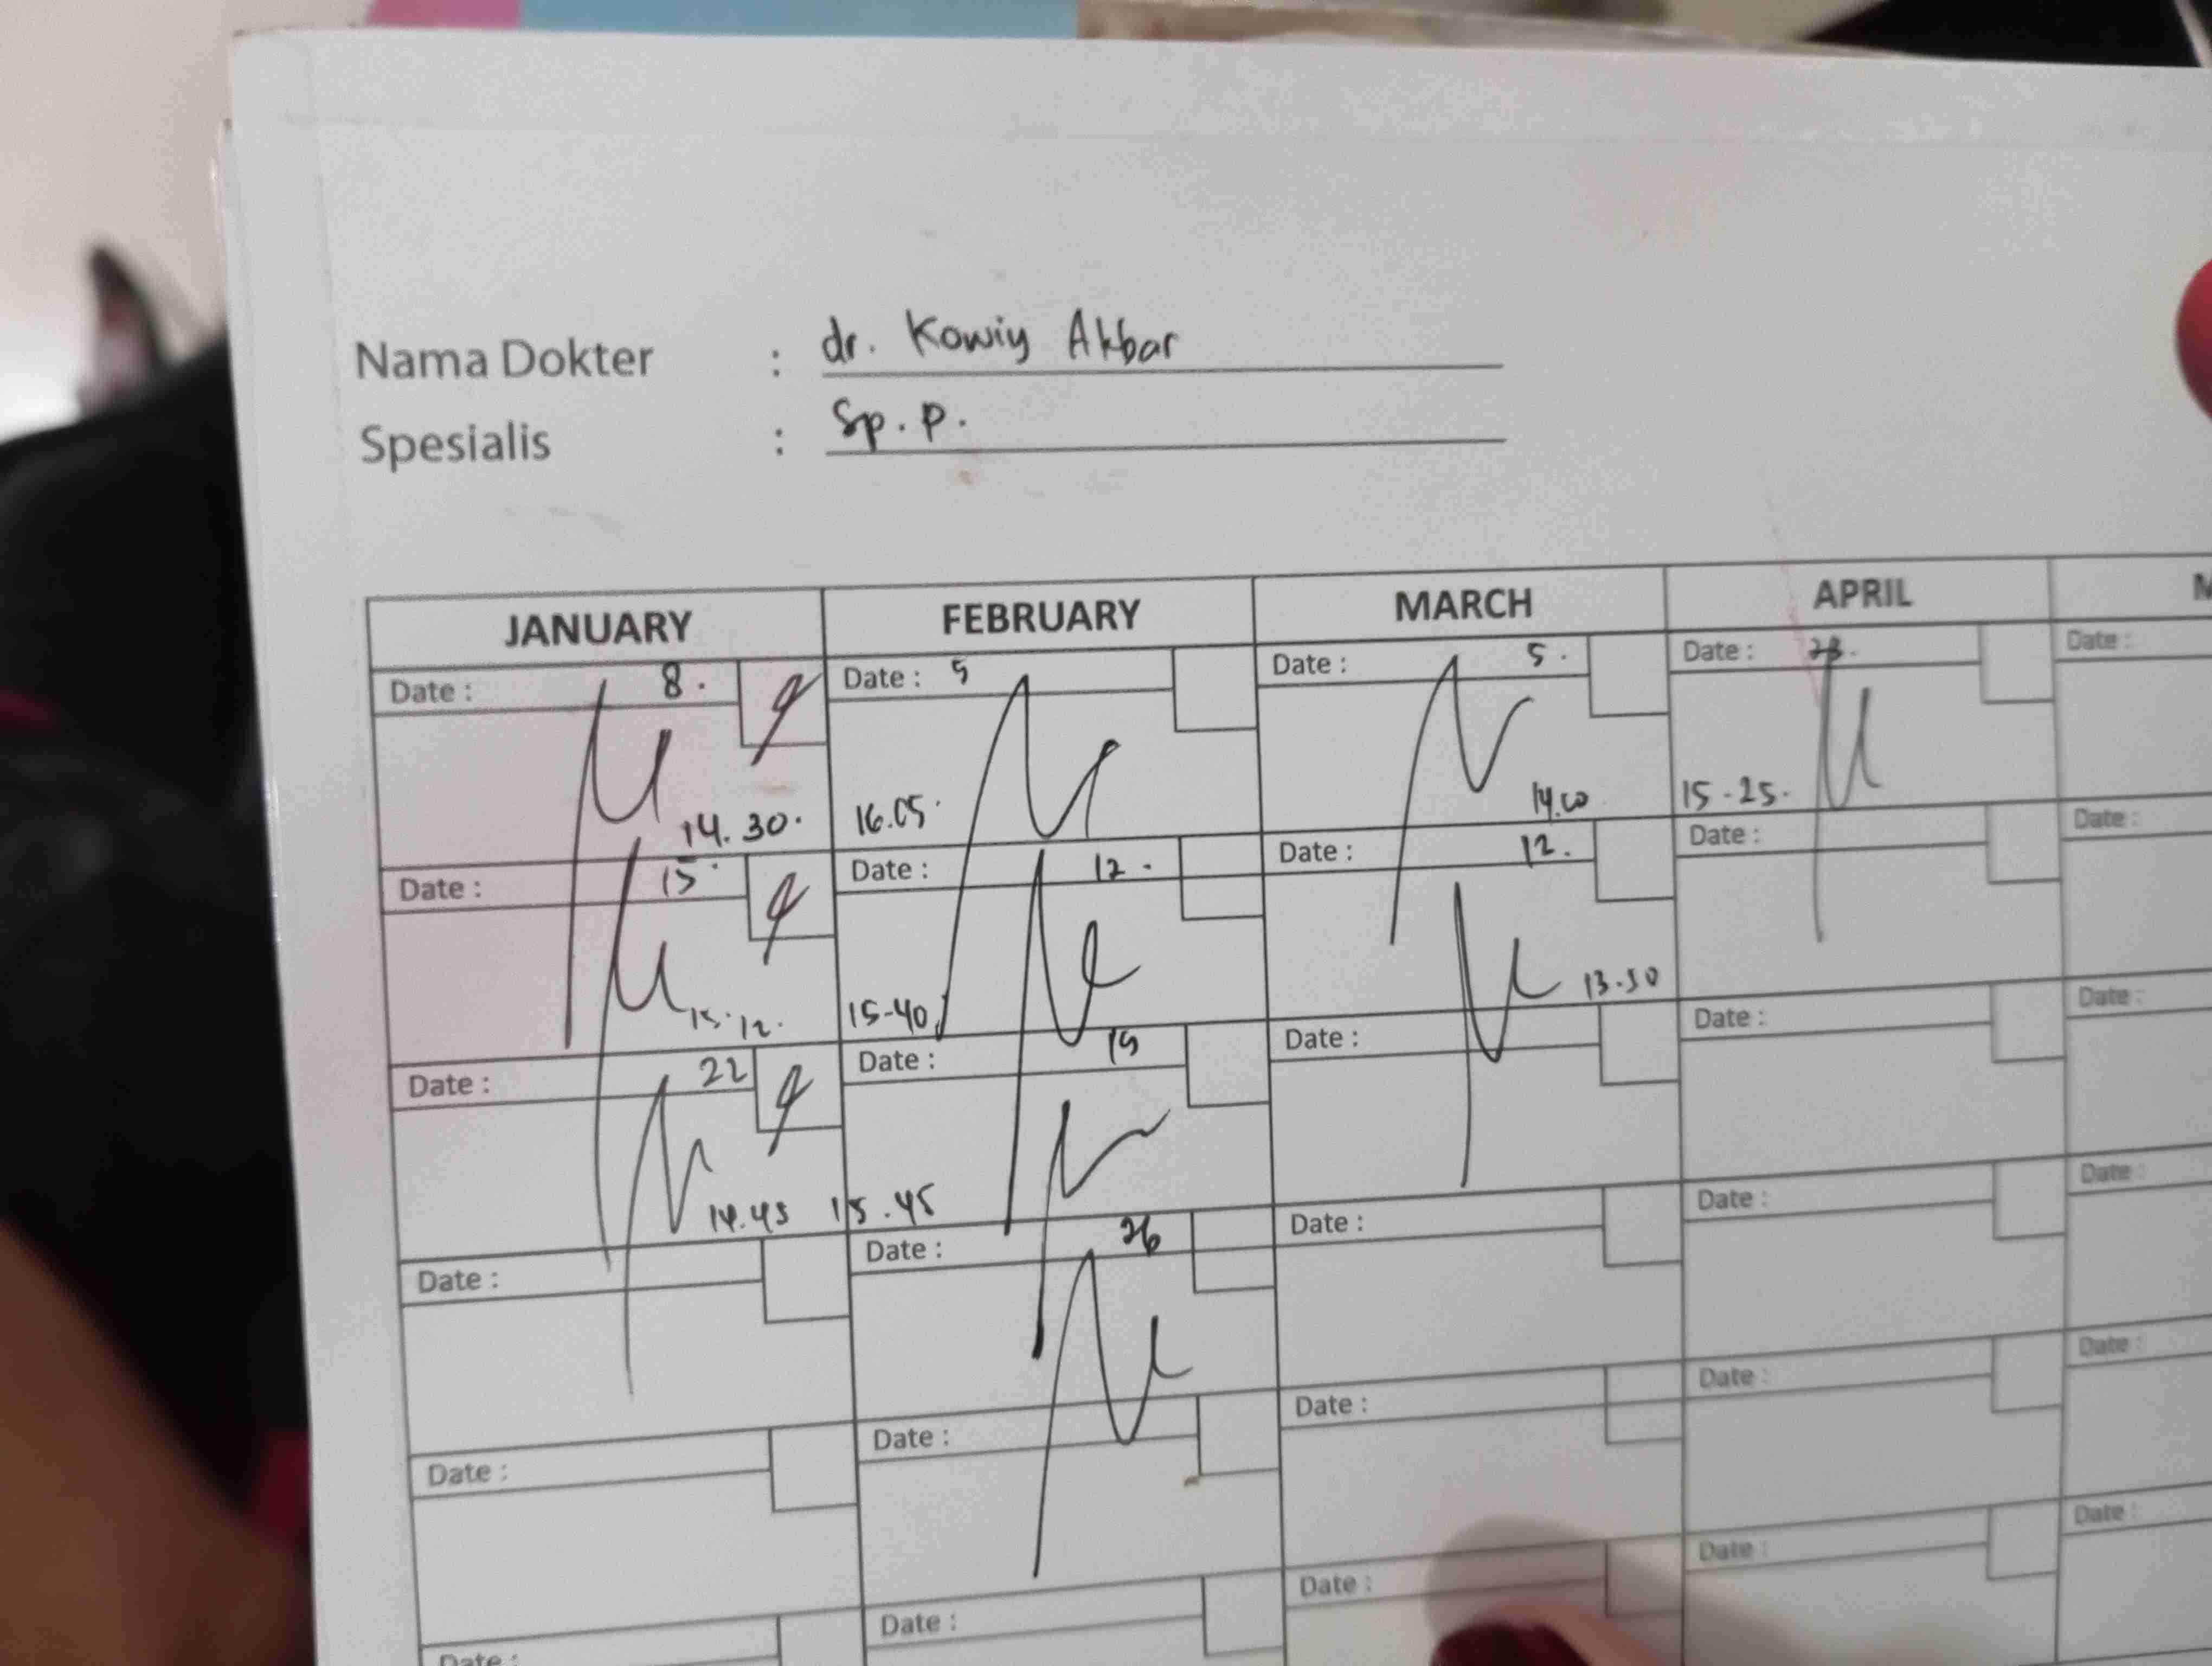 Nama Dokter : dr. Kowiy Akbar
Spesialis : Sp. P.
JANUARY FEBRUARY MARCH APRIL
Date : 8. Date : 5 Date : 5. Date : 23.
14.30. 16.05. 14.00 15-25.
Date : 15 Date : 12. Date : 12. Date : Date :
15.12. 15-40 13.50
Date : 22 Date : 19 Date : Date : Date :
14.45 15.45
Date : Date : 26 Date : Date : Date :
Date : Date : Date : Date : Date :
Date : Date : Date : Date : Date :